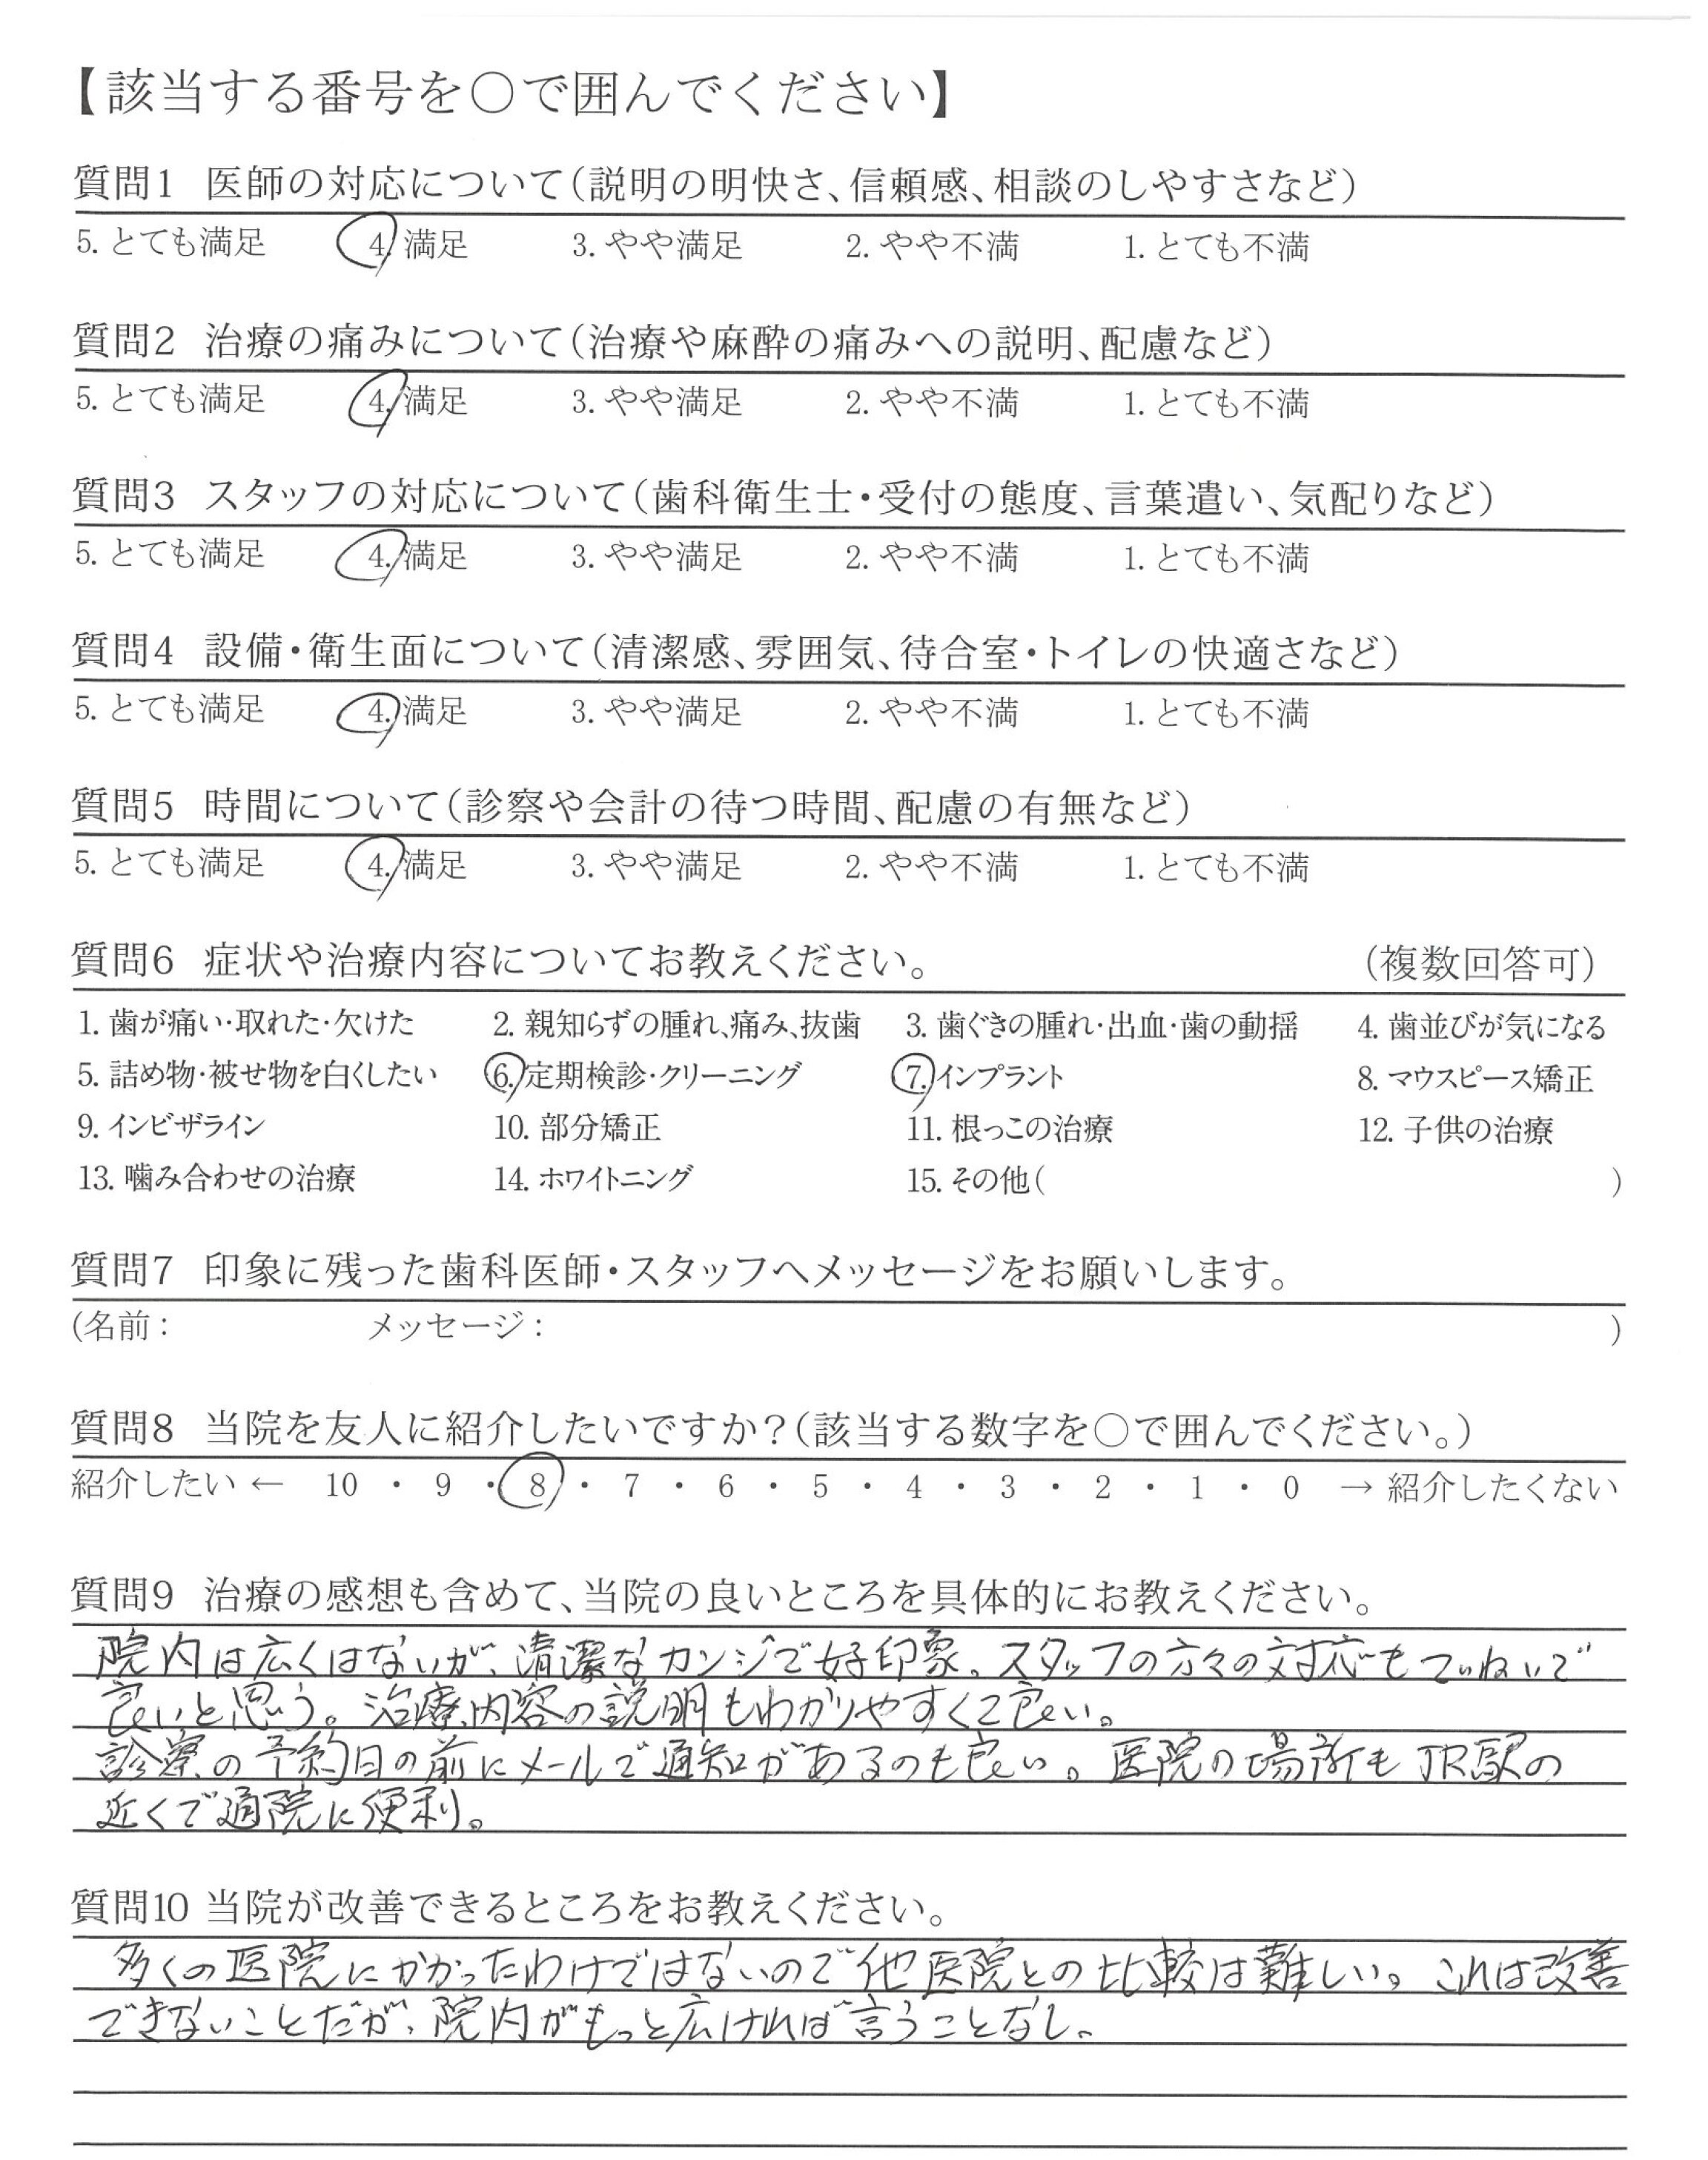 【該当する番号を○で囲んでください】
質問1 医師の対応について(説明の明快さ、信頼感、相談のしやすさなど)
5. とても満足 4. 満足 3. やや満足 2. やや不満 1. とても不満
質問2 治療の痛みについて(治療や麻酔の痛みへの説明、配慮など)
5. とても満足 4. 満足 3. やや満足 2. やや不満 1. とても不満
質問3 スタッフの対応について(歯科衛生士・受付の態度、言葉遣い、気配りなど)
5. とても満足 4. 満足 3. やや満足 2. やや不満 1. とても不満
質問4 設備・衛生面について(清潔感、雰囲気、待合室・トイレの快適さなど)
5. とても満足 4. 満足 3. やや満足 2. やや不満 1. とても不満
質問5 時間について(診察や会計の待つ時間、配慮の有無など)
5. とても満足 4. 満足 3. やや満足 2. やや不満 1. とても不満
質問6 症状や治療内容についてお教えください。 (複数回答可)
1. 歯が痛い・取れた・欠けた 2. 親知らずの腫れ、痛み、抜歯 3. 歯ぐきの腫れ・出血・歯の動揺 4. 歯並びが気になる
5. 詰め物・被せ物を白くしたい 6. 定期検診・クリーニング 7. インプラント 8. マウスピース矯正
9. インビザライン 10. 部分矯正 11. 根っこの治療 12. 子供の治療
13. 噛み合わせの治療 14. ホワイトニング 15. その他( )
質問7 印象に残った歯科医師・スタッフへメッセージをお願いします。
(名前： メッセージ： )
質問8 当院を友人に紹介したいですか？(該当する数字を○で囲んでください。)
紹介したい ← 10 ・ 9 ・ 8 ・ 7 ・ 6 ・ 5 ・ 4 ・ 3 ・ 2 ・ 1 ・ 0 → 紹介したくない
質問9 治療の感想も含めて、当院の良いところを具体的にお教えください。
院内は広くはないが、清潔なカンジで好印象。スタッフの方々の対応もていねいで
良いと思う。治療内容の説明もわかりやすくて良い。
診察の予約日の前にメールで通知があるのも良い。医院の場所もJR駅の
近くで通院に便利。
質問10 当院が改善できるところをお教えください。
多くの医院にかかったわけではないので他医院との比較は難しい。これは改善
できないことだが、院内がもっと広ければ言うことなし。